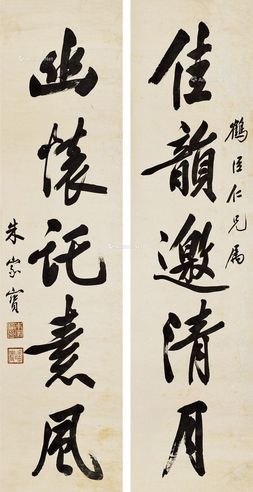 佳韻邀清月
鶴臣仁兄屬
幽懷託素風
朱家寶